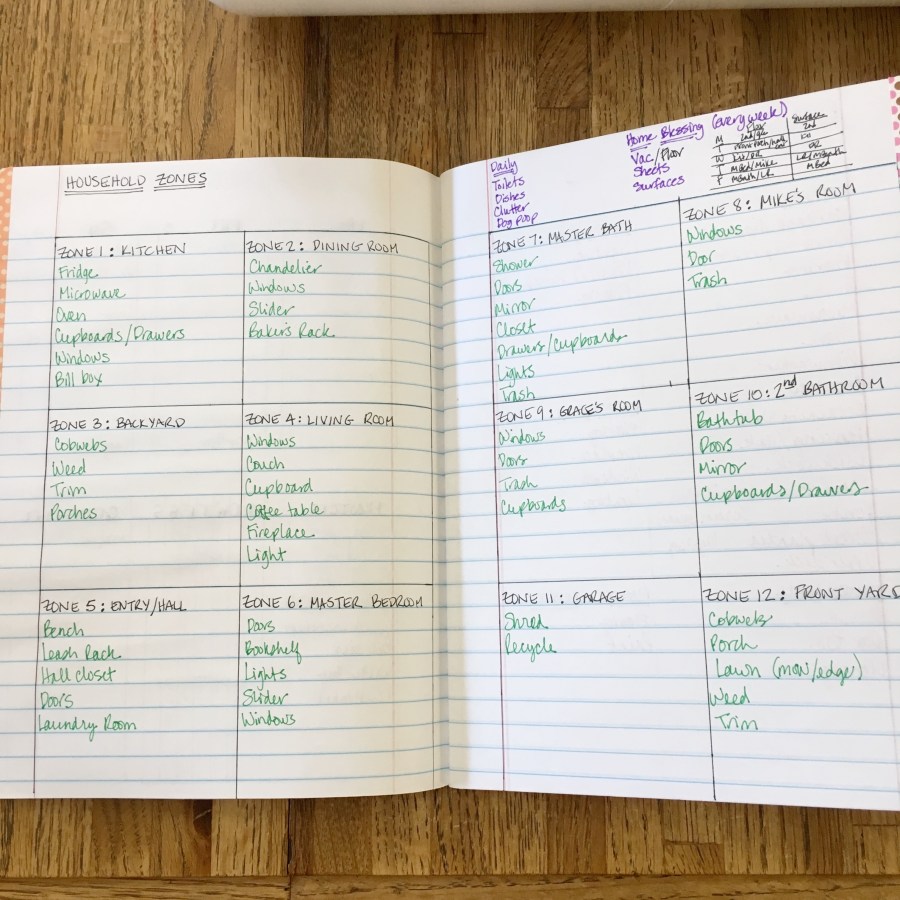 HOUSEHOLD ZONES
ZONE 1: KITCHEN
Fridge
Microwave
Oven
Cupboards/Drawers
Windows
Bill box
ZONE 2: DINING ROOM
Chandelier
Windows
Slider
Baker's Rack
ZONE 3: BACKYARD
Cobwebs
Weed
Trim
Porches
ZONE 4: LIVING ROOM
Windows
Couch
Cupboard
Coffee table
Fireplace
Light
ZONE 5: ENTRY/HALL
Bench
Leash Rack
Hall closet
Doors
Laundry Room
ZONE 6: MASTER BEDROOM
Doors
Bookshelf
Lights
Slider
Windows
Daily
Toilets
Dishes
Clutter
Dog poop
Home Blessing (every week)
Vac./Floor
Sheets
Surfaces
Floor
Surface
M
2nd
T
W
T
F
ZONE 7: MASTER BATH
Shower
Doors
Mirror
Closet
Drawers/Cupboards
Lights
Trash
ZONE 8: MIKE'S ROOM
Windows
Door
Trash
ZONE 9: GRACE'S ROOM
Windows
Doors
Trash
Cupboards
ZONE 10: 2nd BATHROOM
Bathtub
Doors
Mirror
Cupboards/Drawers
ZONE 11: GARAGE
Shred
Recycle
ZONE 12: FRONT YARD
Cobwebs
Porch
Lawn (mow/edge)
Weed
Trim